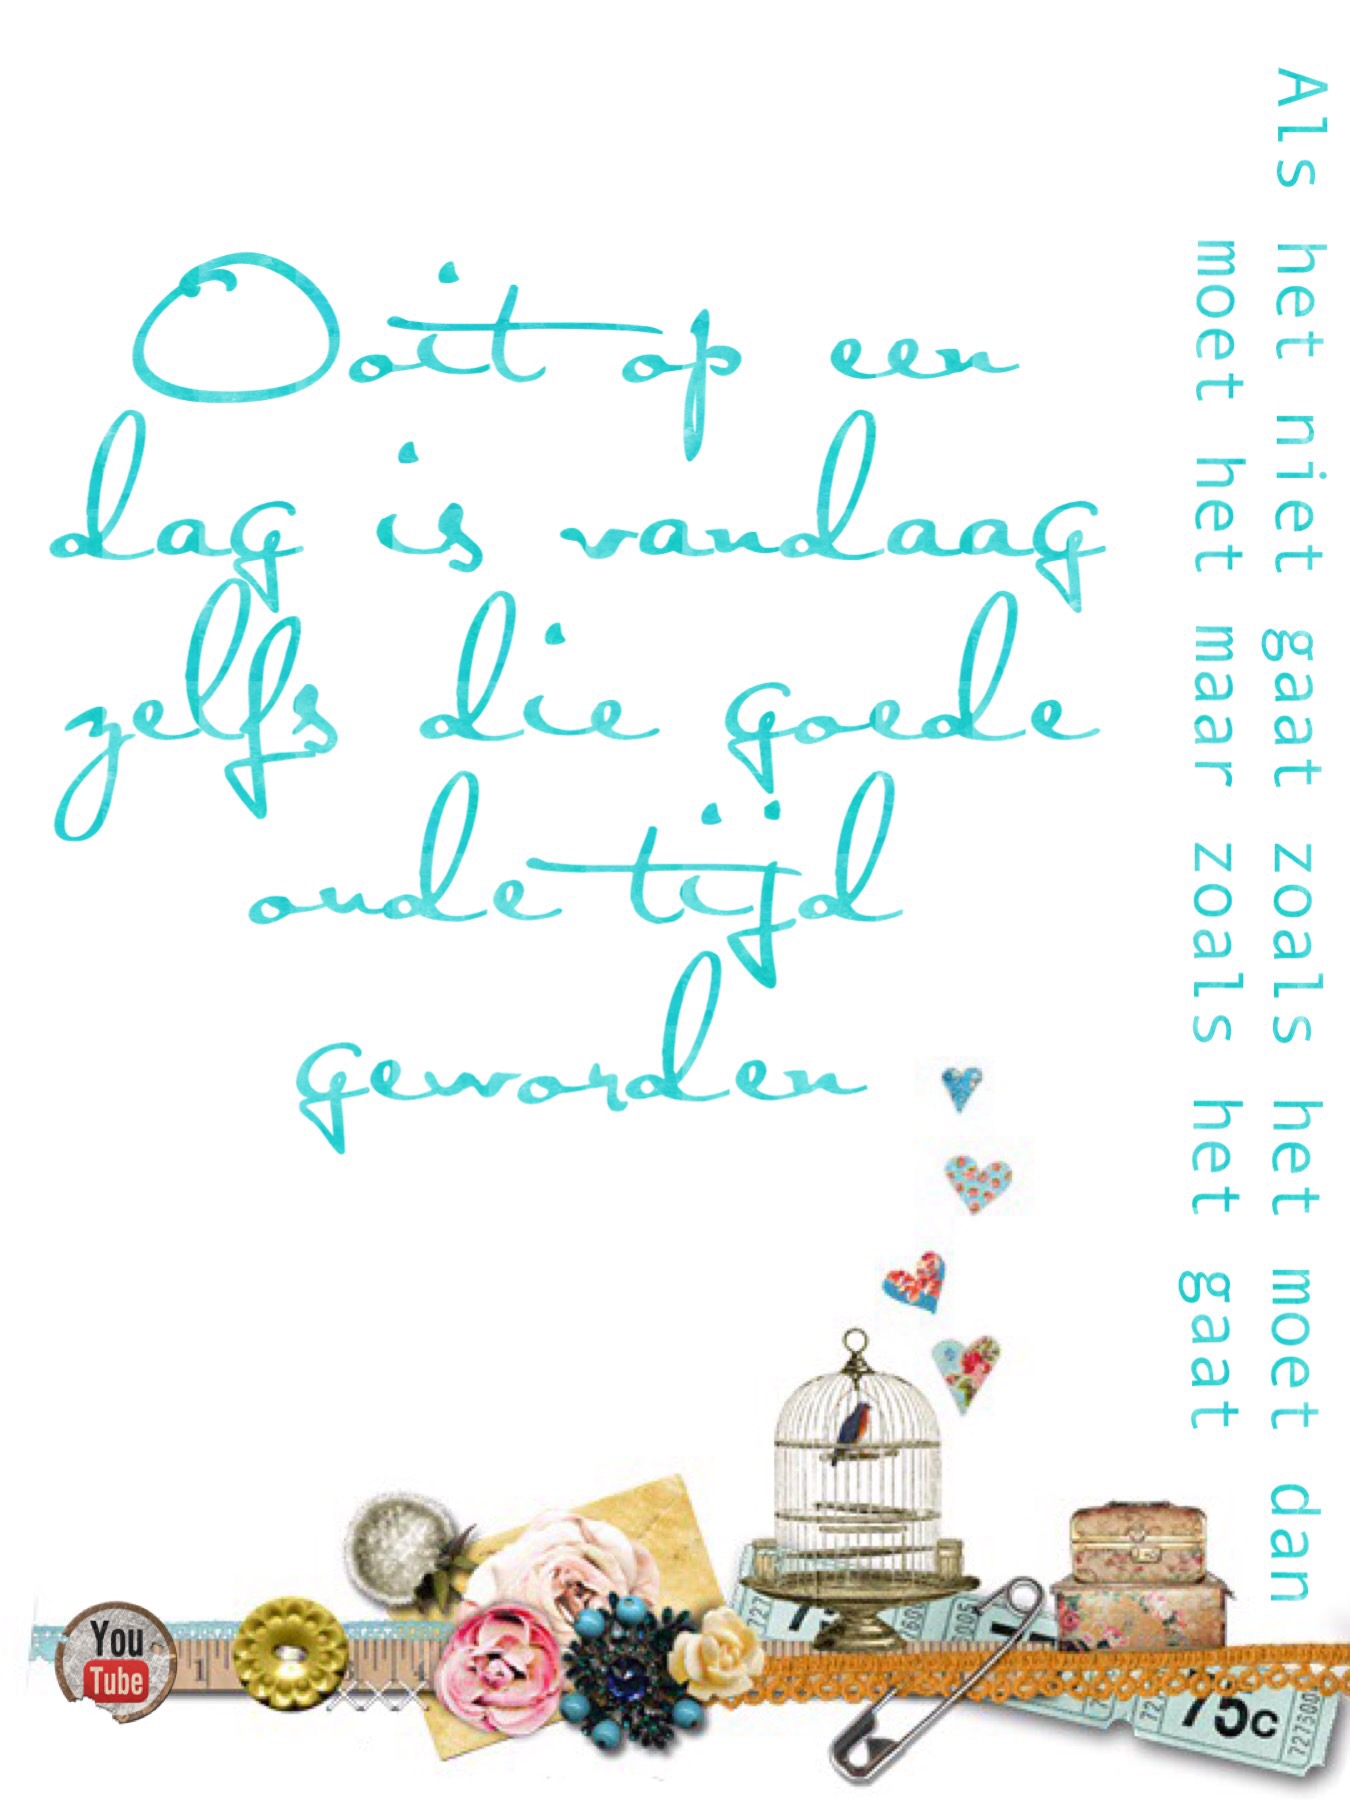 Ooit op een
dag is vandaag
zelfs die goede
oude tijd
geworden
Als het niet gaat zoals het moet dan
moet het maar zoals het gaat
You
Tube
1
75c